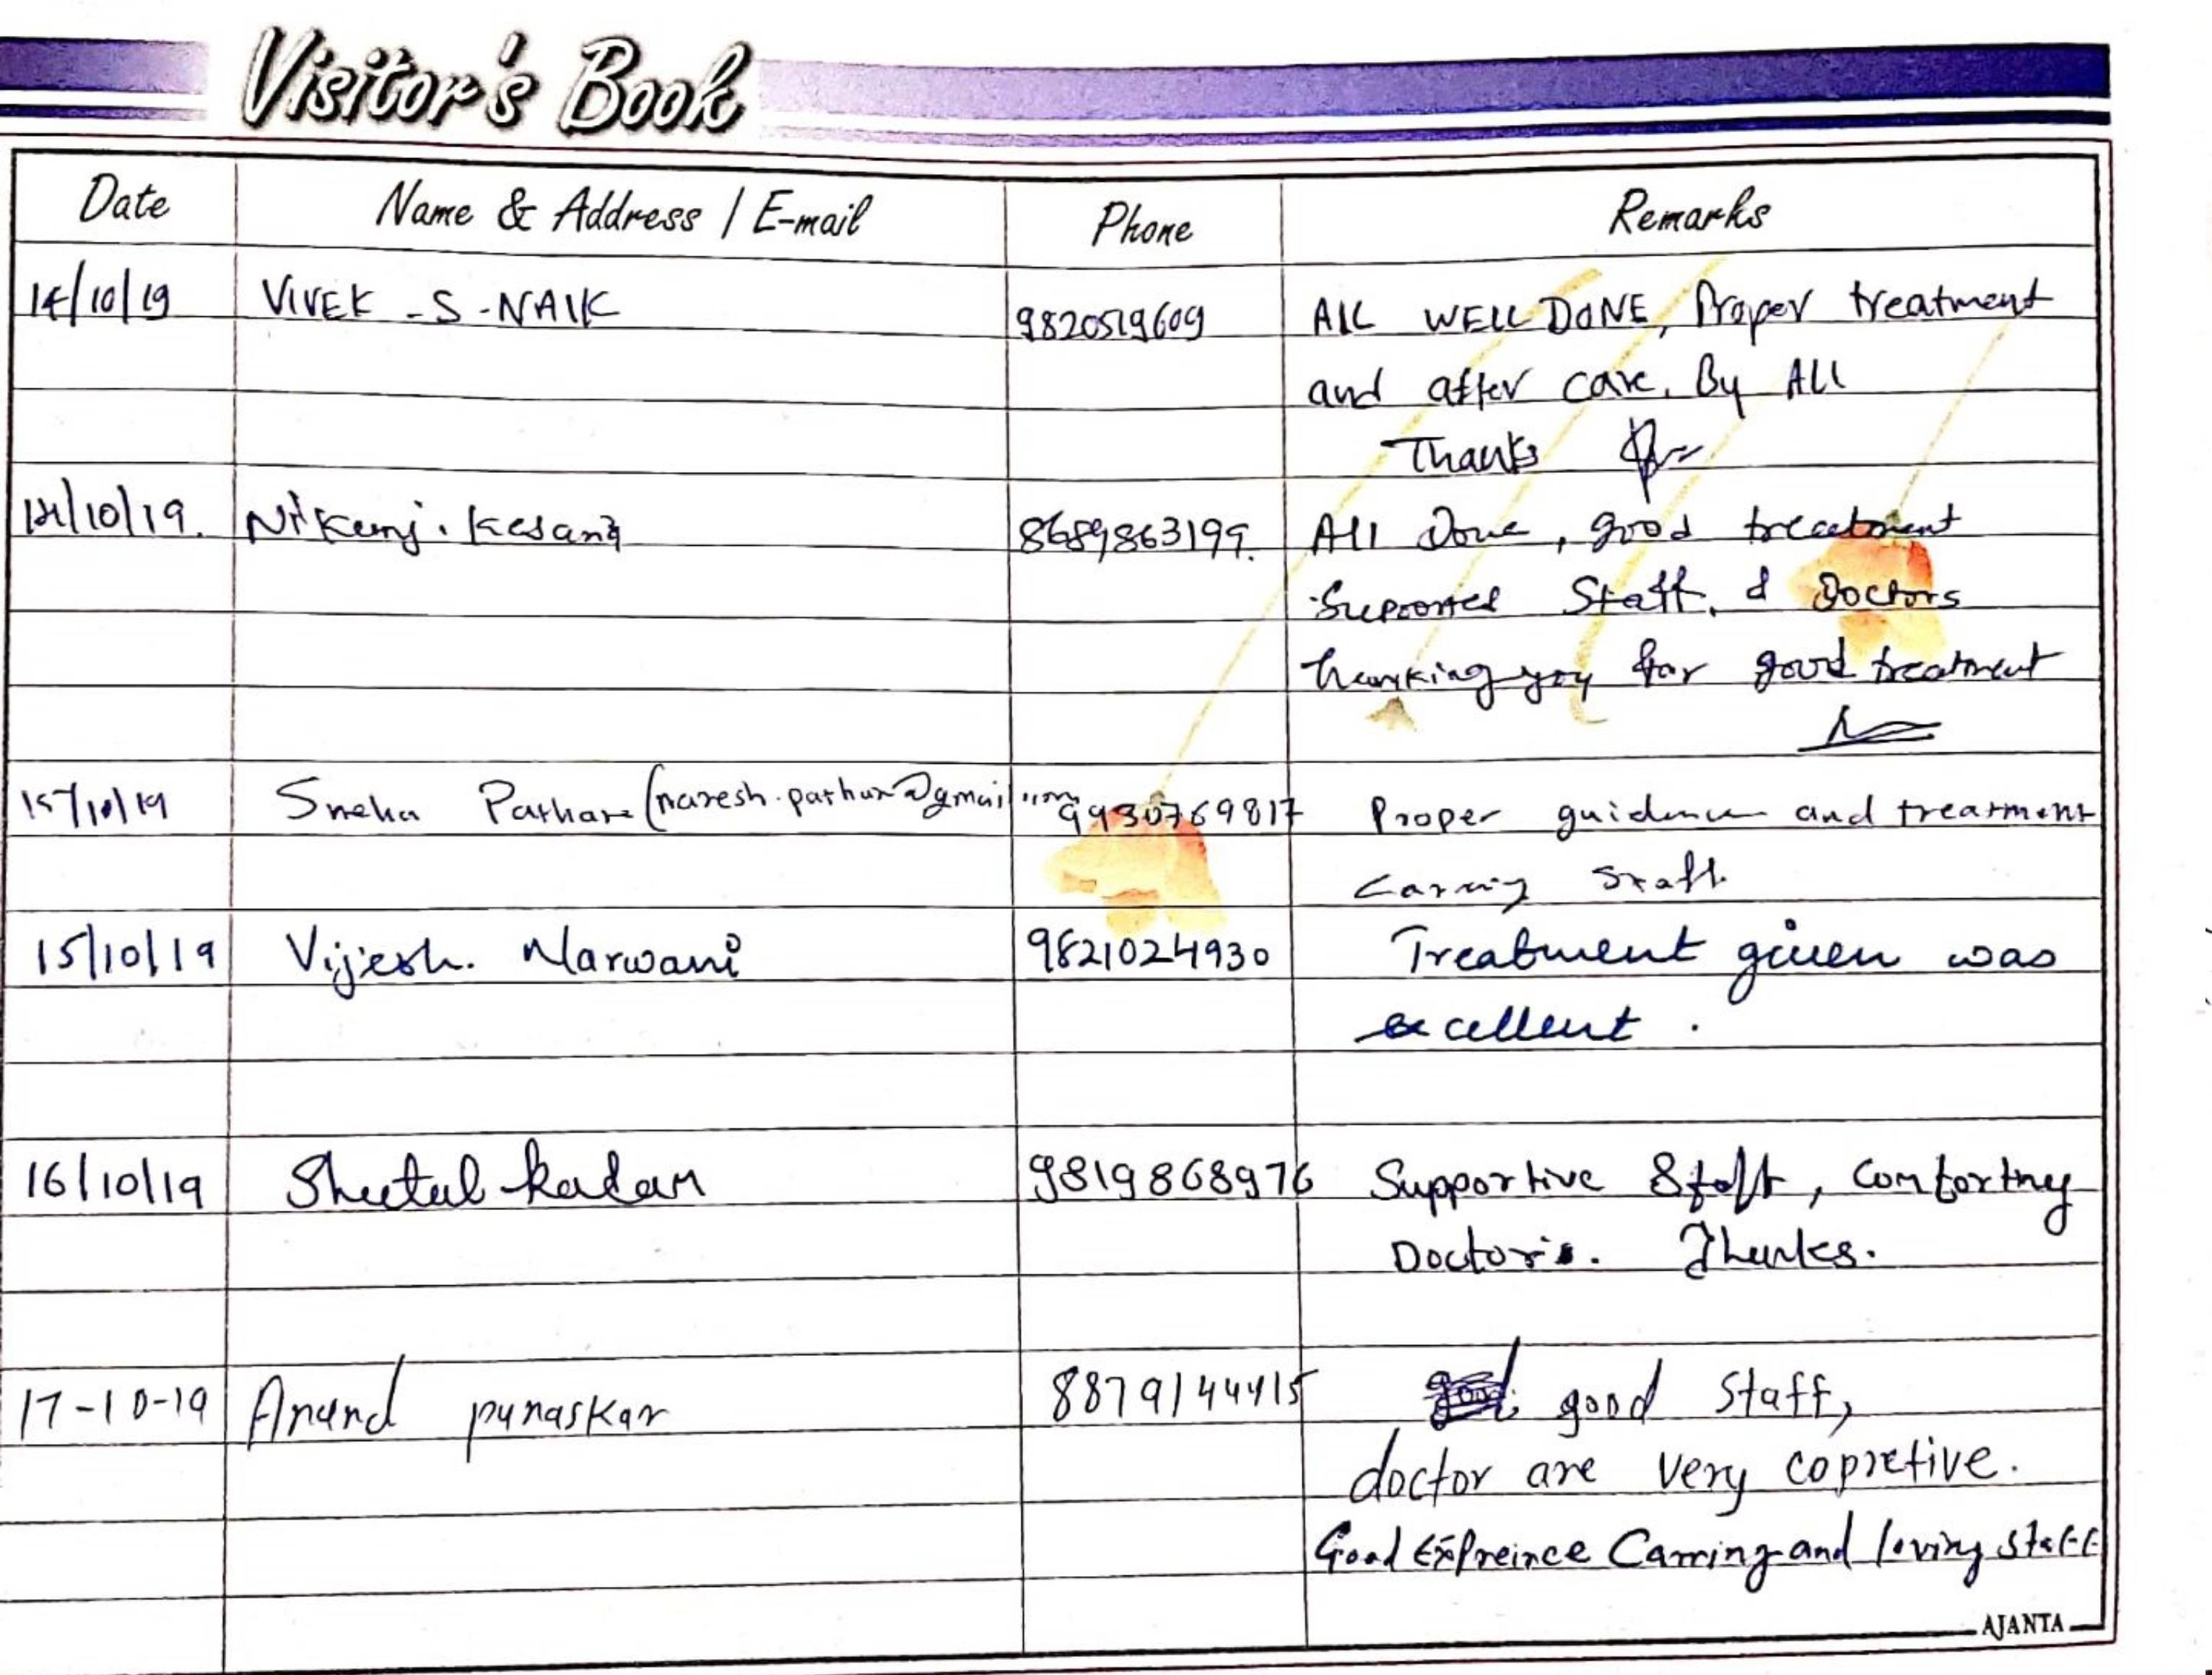 Visitor's Book
Date Name & Address / E-mail Phone Remarks
14/10/19 VIVEK -S-NAIK 9820519609 ALL WELL DONE, Proper treatment
and after care. By ALL
Thanks
14/10/19. Nikunj. Kesani 8689863199. All Done, good treatment
Staff. & Doctors
thanking you for good treatment
15/10/19 Sneha Pathare 9930769817 Proper guidance and treatment
Carring Staff.
15/10/19 Vijesh. Narwani 9821024930 Treatment given was
excellent.
16/10/19 Sheetal Kadam 9819868976 Supportive Staff, Comforting
Doctor's. Thanks.
17-10-19 Anand punaskar 8879144415 good staff,
doctor are very copretive.
Good Expreince Carring and loving staff
AJANTA